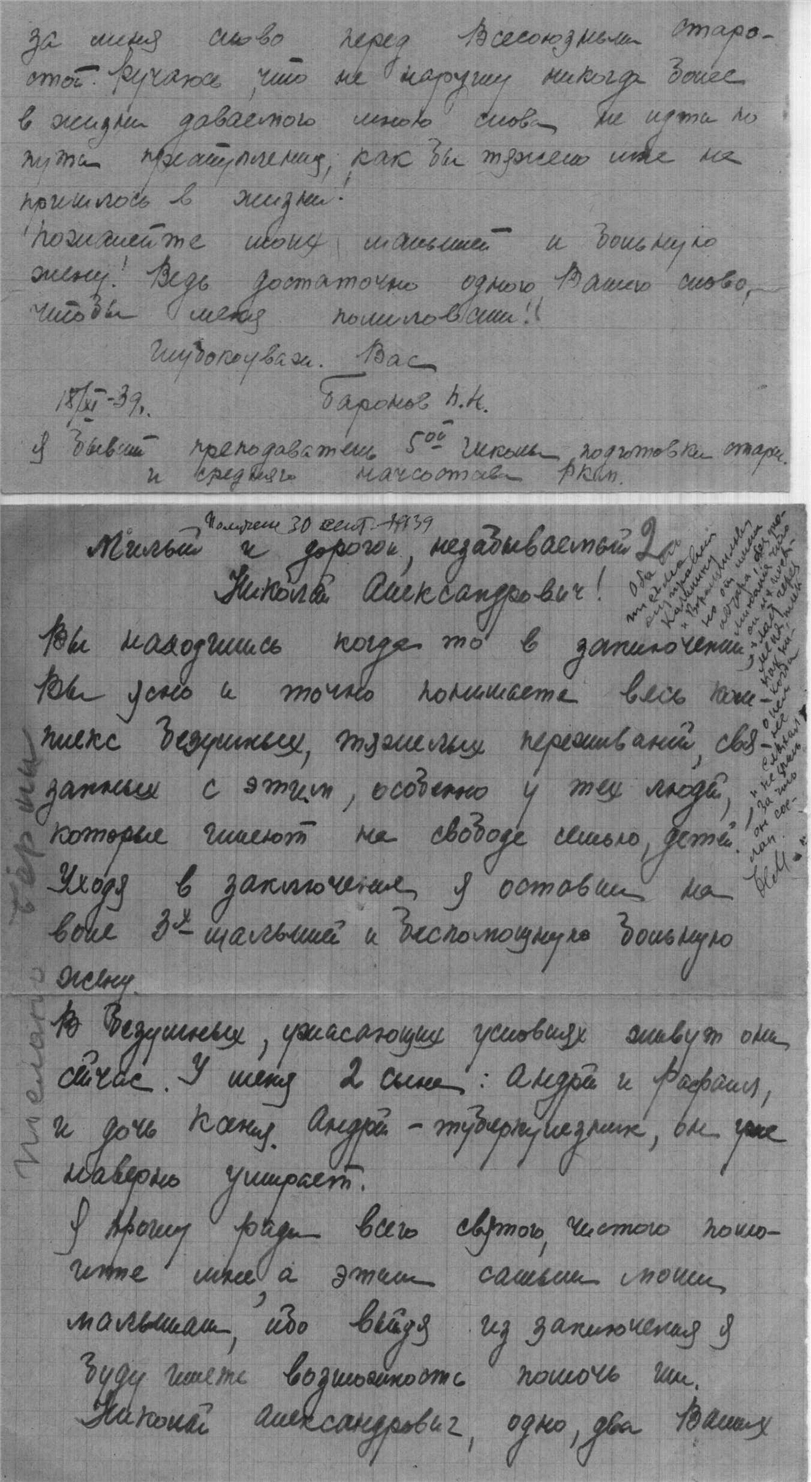 за меня слово перед Всесоюзным старо-
стой. Ручаюсь, что не нарушу никогда более
в жизни даваемого мною слова не идти по
пути преступления, как бы тяжело мне не
пришлось в жизни!
Пожалейте моих малышей и больную
жену! Ведь достаточно одного Вашего слова,
чтобы меня помиловали!!
Глубокоуваж. Вас
18/XI-39г. Баронов П.Н.
Я бывший преподаватель 5ой школы подготовки старш.
и среднего начсостава РКМ.
Получено 30 сент. 1939
Милый и дорогой, незабываемый
Николай Александрович!
Вы находились когда то в заключении
Вы ясно и точно понимаете весь ком-
плекс безумных, тяжелых переживаний, свя-
занных с этим, особенно у тех людей,
которые имеют на свободе семью, детей.
Уходя в заключение я оставил на
воле 3х малышей и беспомощную больную
жену.
В безумных, ужасающих условиях живут они
сейчас. У меня 2 сына: Андрей и Рафаил,
и дочь Ксеня. Андрей – туберкулезник, он уже
наверно умирает.
Я прошу ради всего святого, чистого помо-
гите мне, а этим самым моим
малышам, ибо выйдя из заключения я
буду иметь возможность помочь им.
Николай Александрович, одно, два Ваших
оба
письма
отправил
Калинину
он сос-
лан.
Н.М.